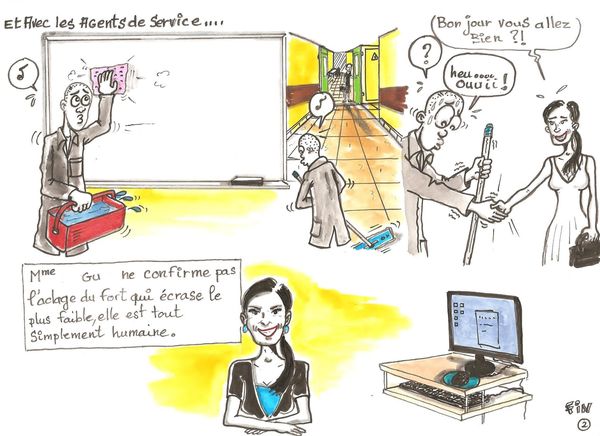 Et Avec les Agents de Service....
Bonjour vous allez
Bien ?!
?
heuoooo
Ouuii!
Mme Gu ne confirme pas
l'adage du fort qui écrase le
plus faible, elle est tout
simplement humaine.
FIN
2